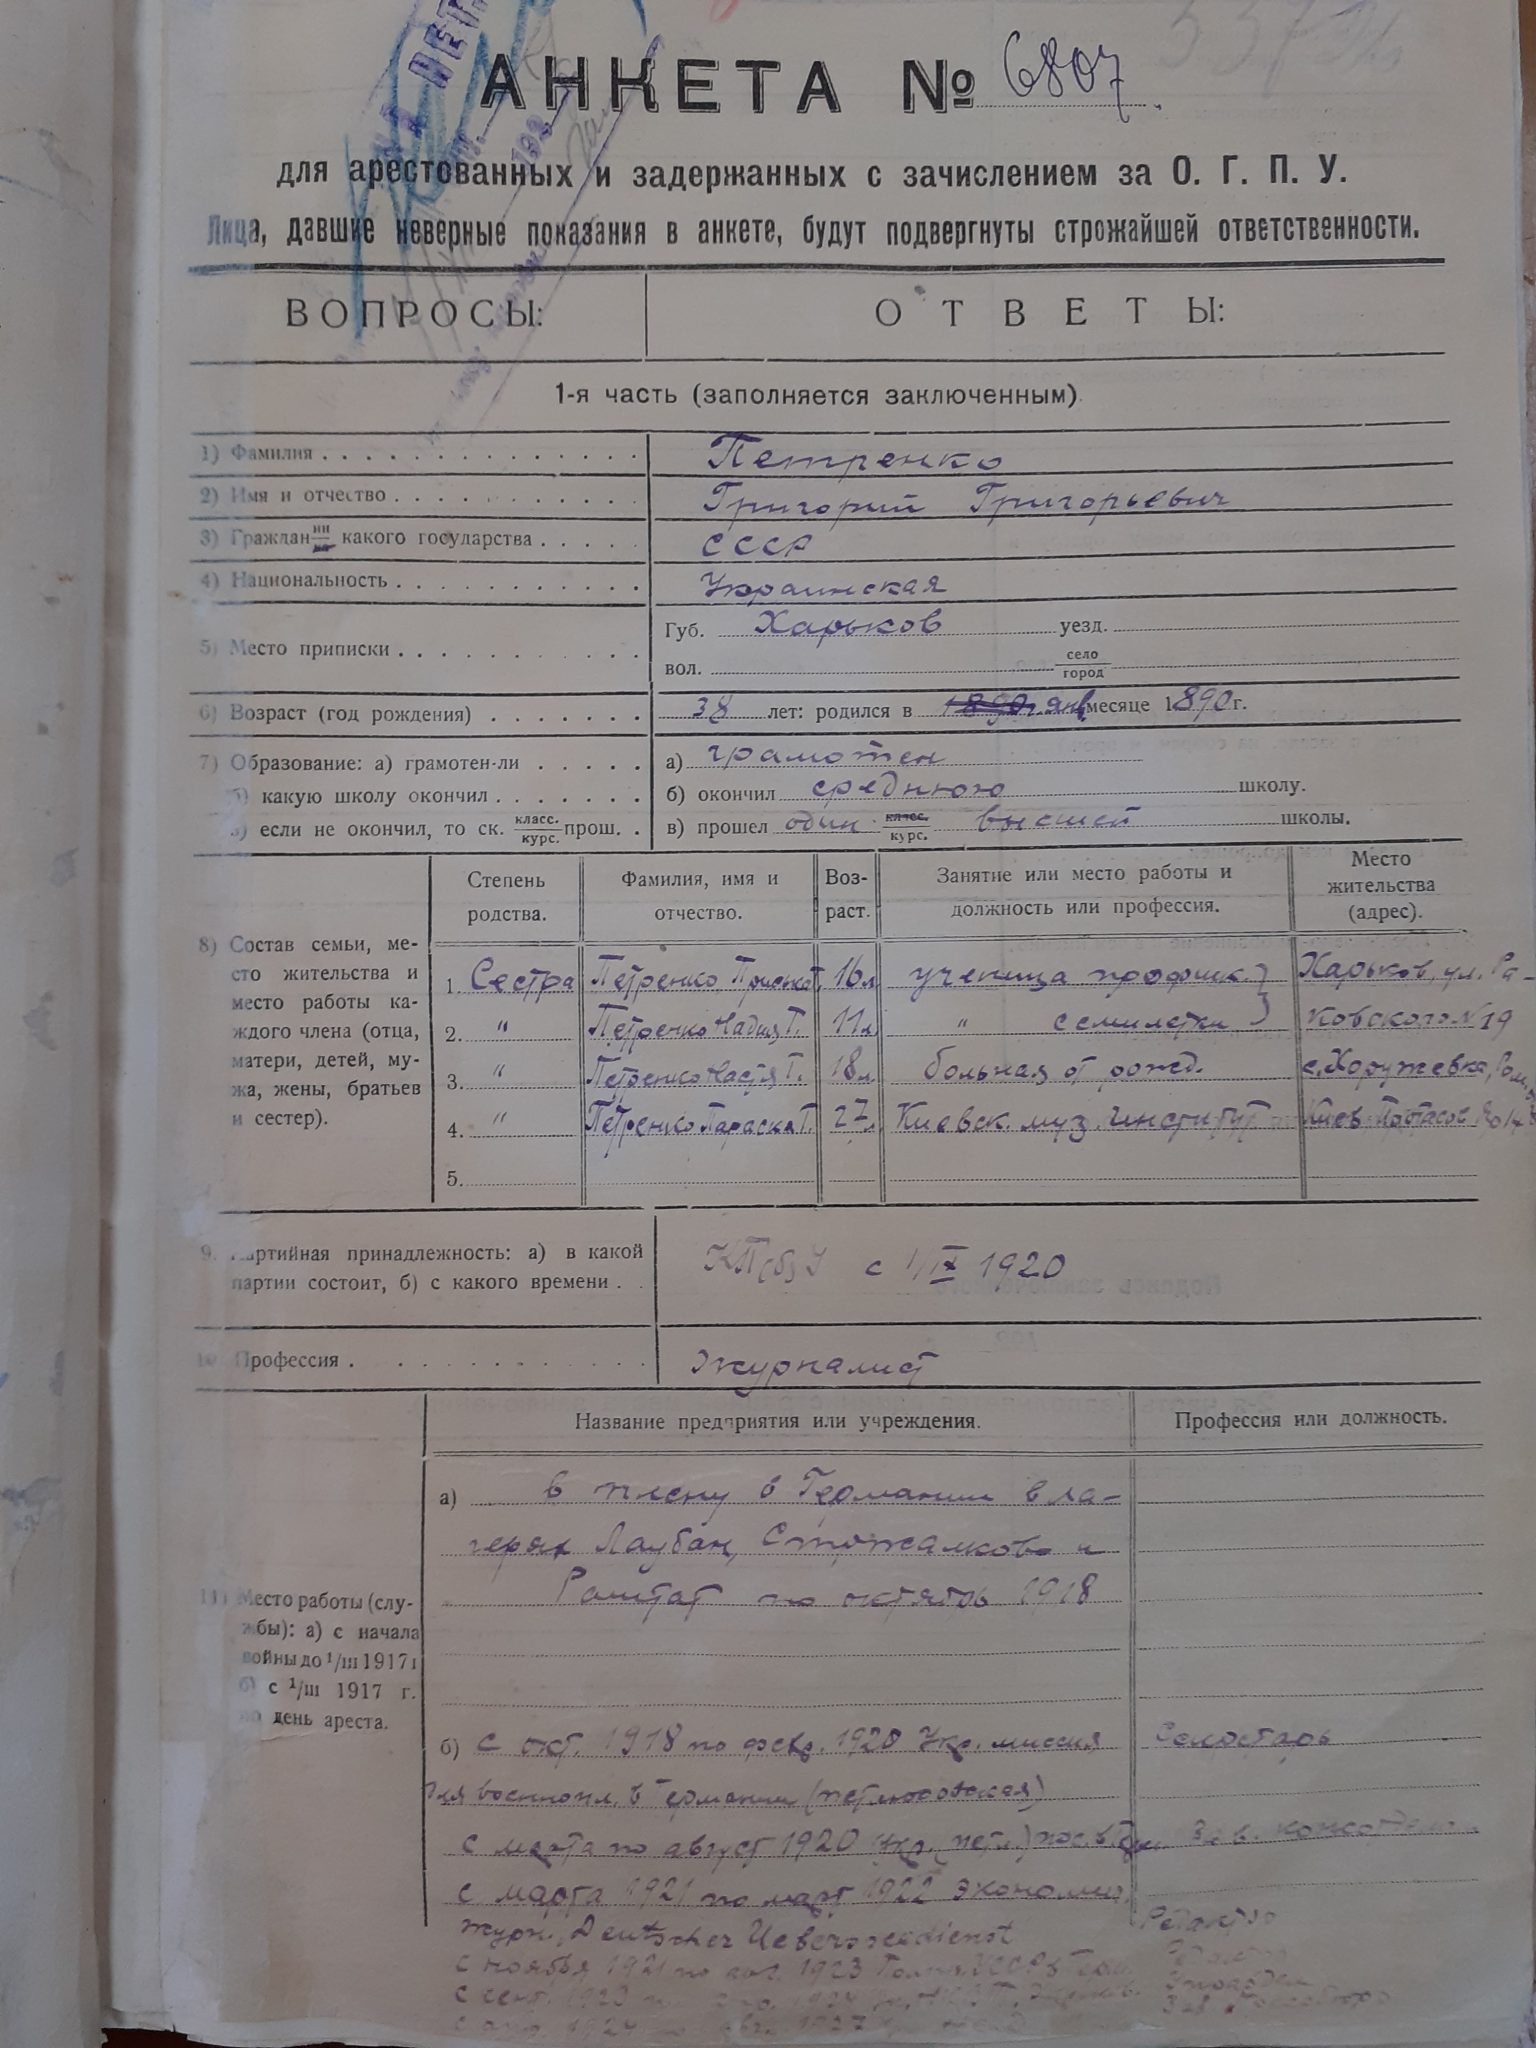 АНКЕТА № 6807
для арестованных и задержанных с зачислением за О. Г. П. У.
Лица, давшие неверные показания в анкете, будут подвергнуты строжайшей ответственности.
ВОПРОСЫ: ОТВЕТЫ:
1-я часть (заполняется заключенным)
1) Фамилия Петренко
2) Имя и отчество Григорий Григорьевич
3) Граждан какого государства СССР
4) Национальность Украинская
5) Место приписки Губ. Харьков уезд.
вол. село город
6) Возраст (год рождения) 38 лет: родился в янв месяце 1890 г.
7) Образование: а) грамотен-ли а) грамотен
б) какую школу окончил б) окончил среднюю школу.
в) если не окончил, то ск. класс. курс. прош. в) прошел один класс. курс. высшей школы.
Степень родства. Фамилия, имя и отчество. Воз-раст. Занятие или место работы и должность или профессия. Место жительства (адрес).
8) Состав семьи, ме-
сто жительства и
место работы ка-
ждого члена (отца,
матери, детей, му-
жа, жены, братьев
и сестер).
1. Сестра Петренко 16 л ученица профшк. Харьков, ул. Ра-
2. " Петренко Надия Г. 11 л " семилетки ковского № 19
3. " Петренко Настя Г. 18 л. больная от рожд. с. Хоружевка,
4. " Петренко Параска Г. 27 л. Киевск. муз. институт Киев
5.
9. Партийная принадлежность: а) в какой
партии состоит, б) с какого времени КП(б)У с 1/IX 1920
10. Профессия журналист
Название предприятия или учреждения. Профессия или должность.
11) Место работы (слу-
жбы): а) с начала
войны до 1/III 1917 г
б) с 1/III 1917 г.
по день ареста.
а) в плену в Германии в ла-
герях Лаубан, Стржалково и
Раштат по октябрь 1918
б) с окт. 1918 по февр. 1920 Укр. миссия Секретарь
для военнопл. в Германии (петлюровская)
с марта по август 1920 Укр. (петл.) пос. в Зав.
с марта 1921 по март 1922 экономич.
журн. Deutscher Ueberseedienst Редактор
с ноября 1921 по 1923
с сент. 1923